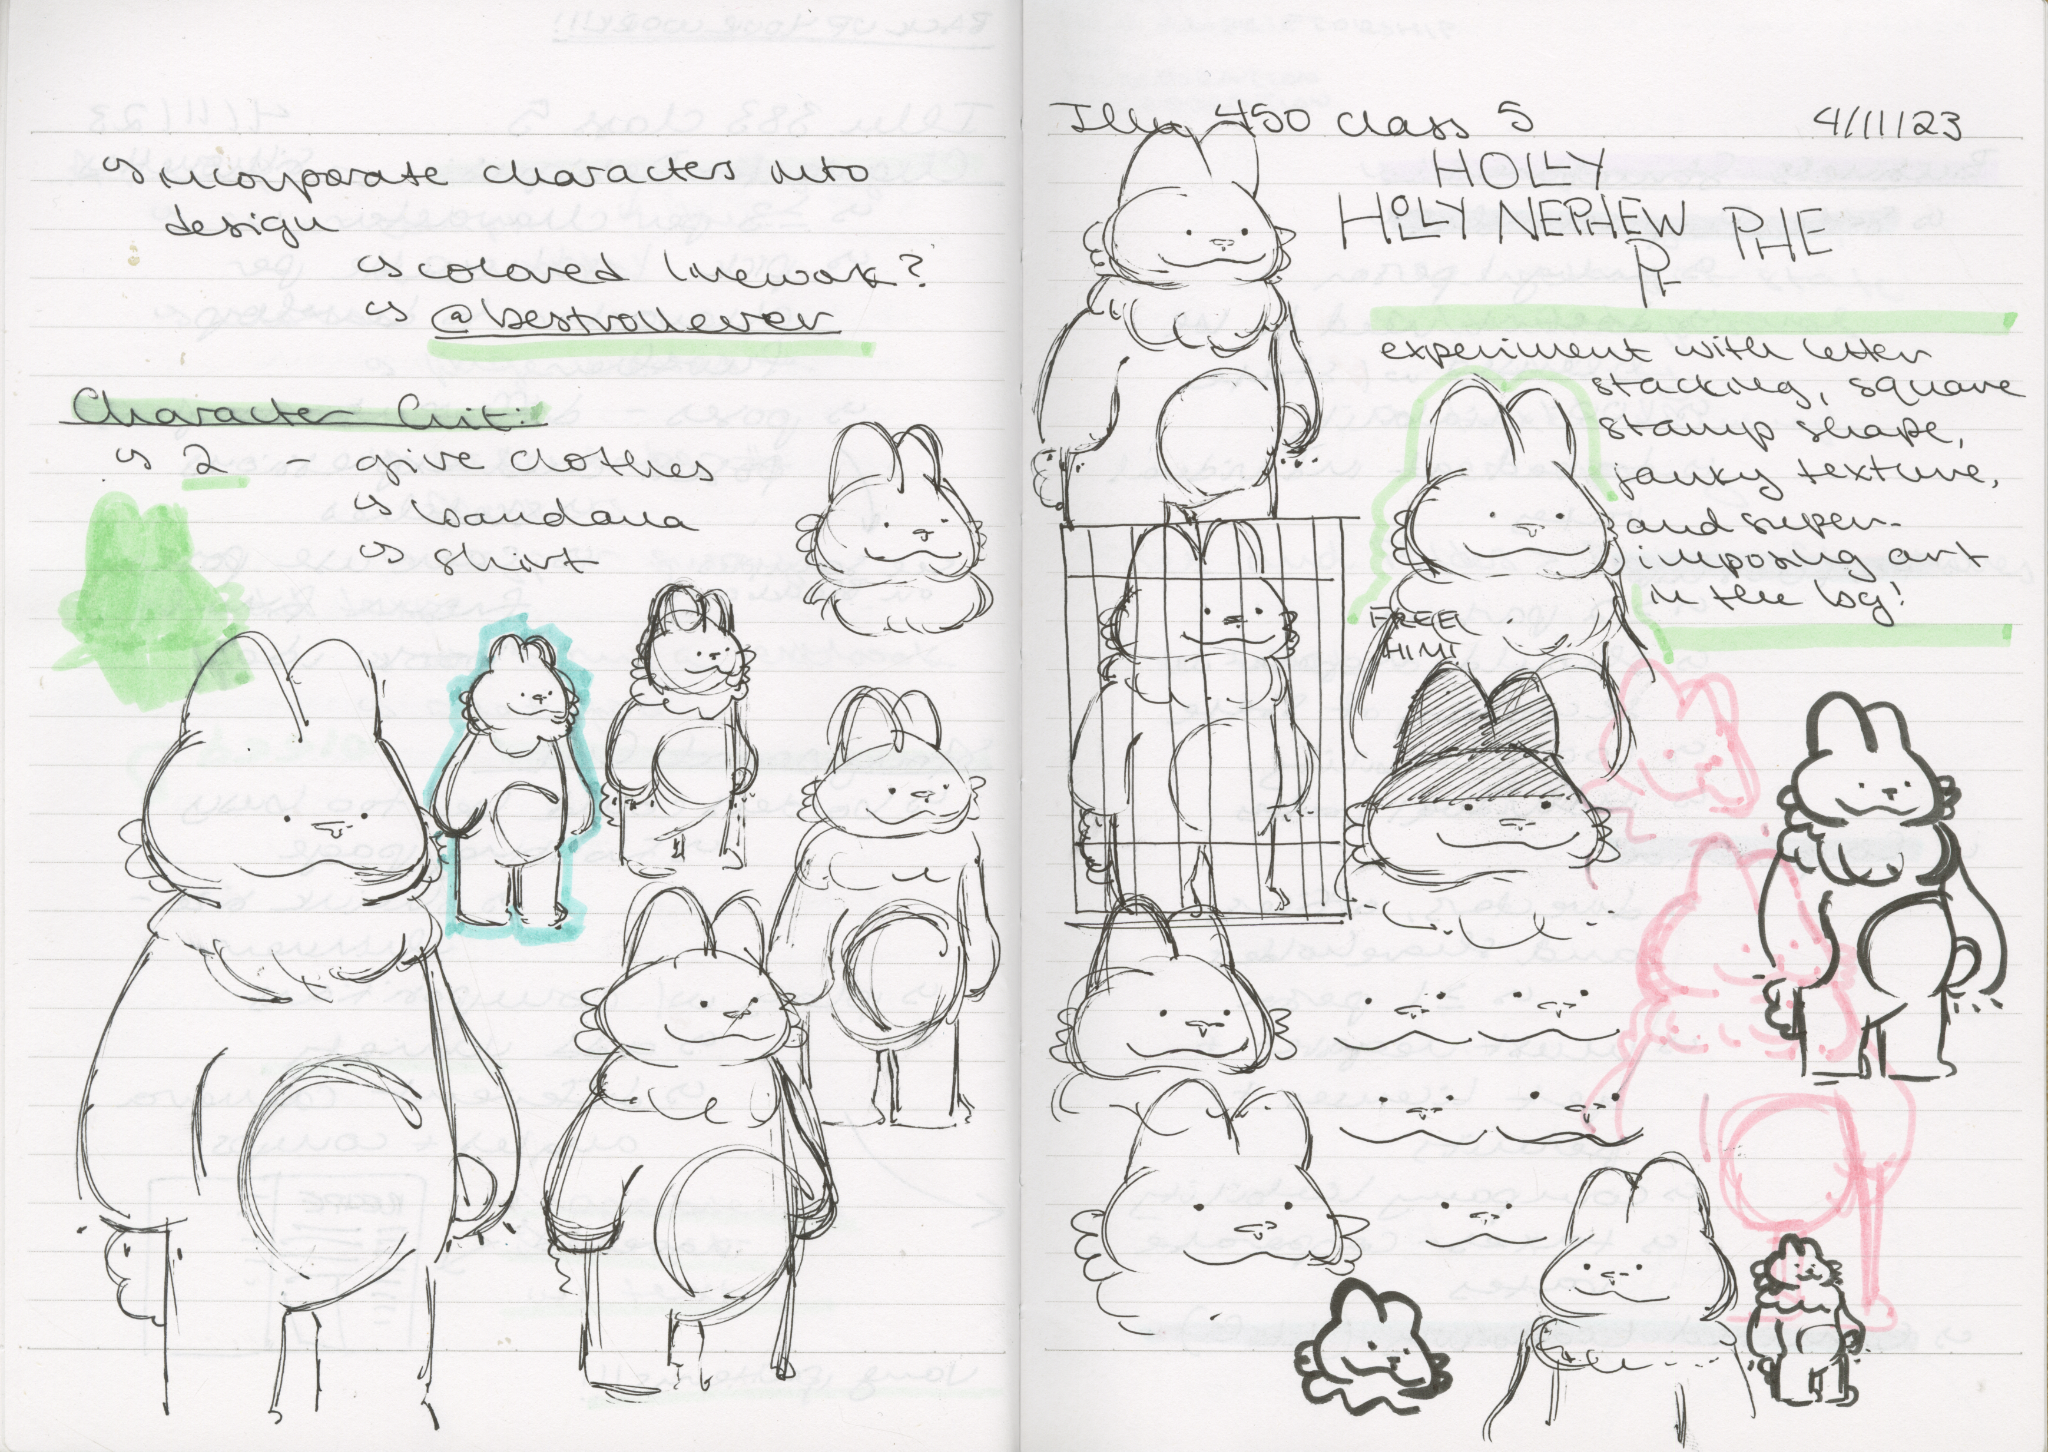 incorporate characters into
design
colored linework?
@bestrollever
Character Crit:
2 - give clothes
bandana
shirt
Illu 450 class 5
4/11/23
HOLLY
HOLLY NEPHEW PHE
PH
experiment with letter
stacking, square
stamp shape,
janky texture,
and super-
imposing art
in the bg!
FREE
HIM!